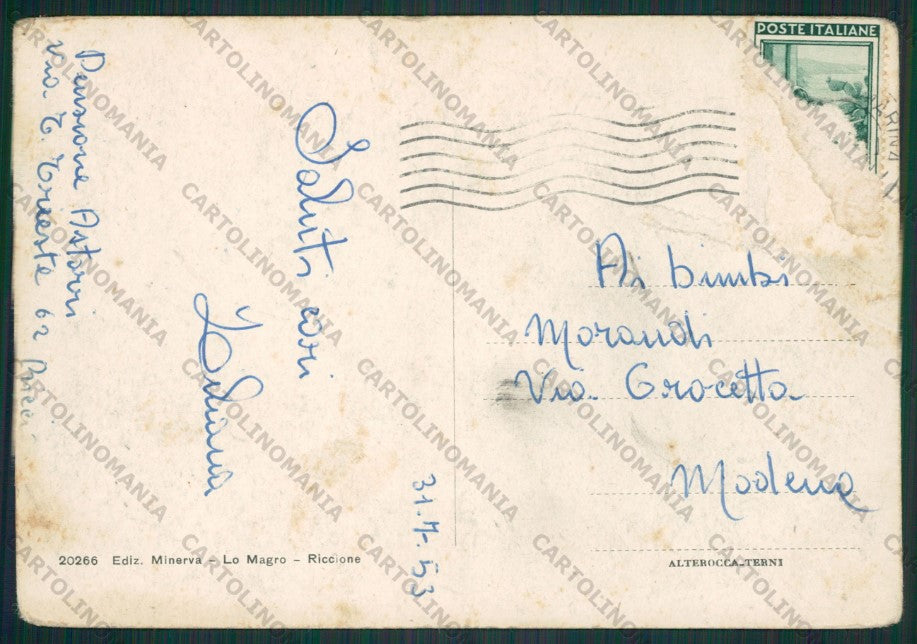 POSTE ITALIANE
Pensione Astorri
via T. Trieste 62
Saluti cari
31.7.53
Ai bimbi
Morandi
Via Crocetta
Modena
20266 Ediz. Minerva - Lo Magro - Riccione
ALTEROCCA-TERNI
CARTOLINOMANIA